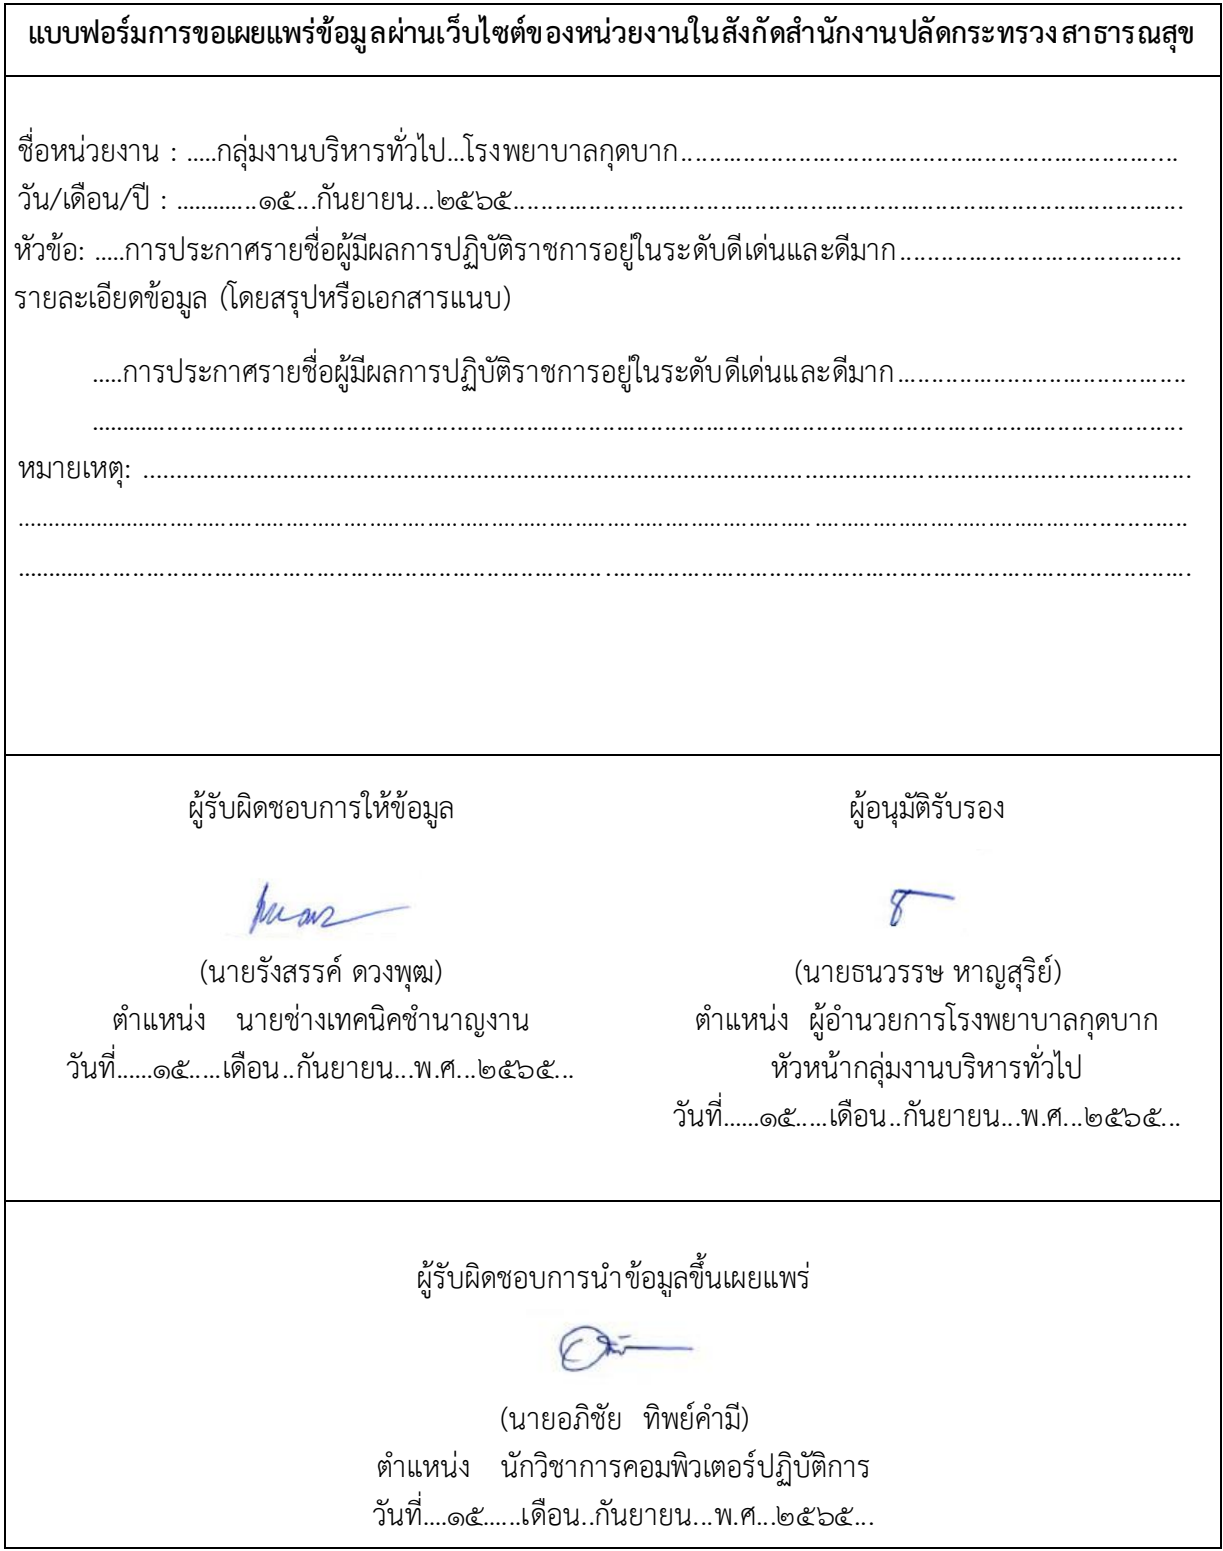 แบบฟอร์มการขอเผยแพร่ข้อมูลผ่านเว็บไซต์ของหน่วยงานในสังกัดสำนักงานปลัดกระทรวงสาธารณสุข
ชื่อหน่วยงาน : .....กลุ่มงานบริหารทั่วไป...โรงพยาบาลกุดบาก..........................................................................
วัน/เดือน/ปี : .............๑๕...กันยายน...๒๕๖๕....................................................................................................
หัวข้อ: .....การประกาศรายชื่อผู้มีผลการปฏิบัติราชการอยู่ในระดับดีเด่นและดีมาก.........................................
รายละเอียดข้อมูล (โดยสรุปหรือเอกสารแนบ)
.....การประกาศรายชื่อผู้มีผลการปฏิบัติราชการอยู่ในระดับดีเด่นและดีมาก..........................................
................................................................................................................................................................
หมายเหตุ: ..........................................................................................................................................................
................................................................................................................................................................
................................................................................................................................................................
ผู้รับผิดชอบการให้ข้อมูล ผู้อนุมัติรับรอง
(นายรังสรรค์ ดวงพุฒ) (นายธนวรรษ หาญสุริย์)
ตำแหน่ง นายช่างเทคนิคชำนาญงาน ตำแหน่ง ผู้อำนวยการโรงพยาบาลกุดบาก
วันที่......๑๕.....เดือน..กันยายน...พ.ศ...๒๕๖๕... หัวหน้ากลุ่มงานบริหารทั่วไป
วันที่......๑๕.....เดือน..กันยายน...พ.ศ...๒๕๖๕...
ผู้รับผิดชอบการนำข้อมูลขึ้นเผยแพร่
(นายอภิชัย ทิพย์คำมี)
ตำแหน่ง นักวิชาการคอมพิวเตอร์ปฏิบัติการ
วันที่....๑๕......เดือน..กันยายน...พ.ศ...๒๕๖๕...